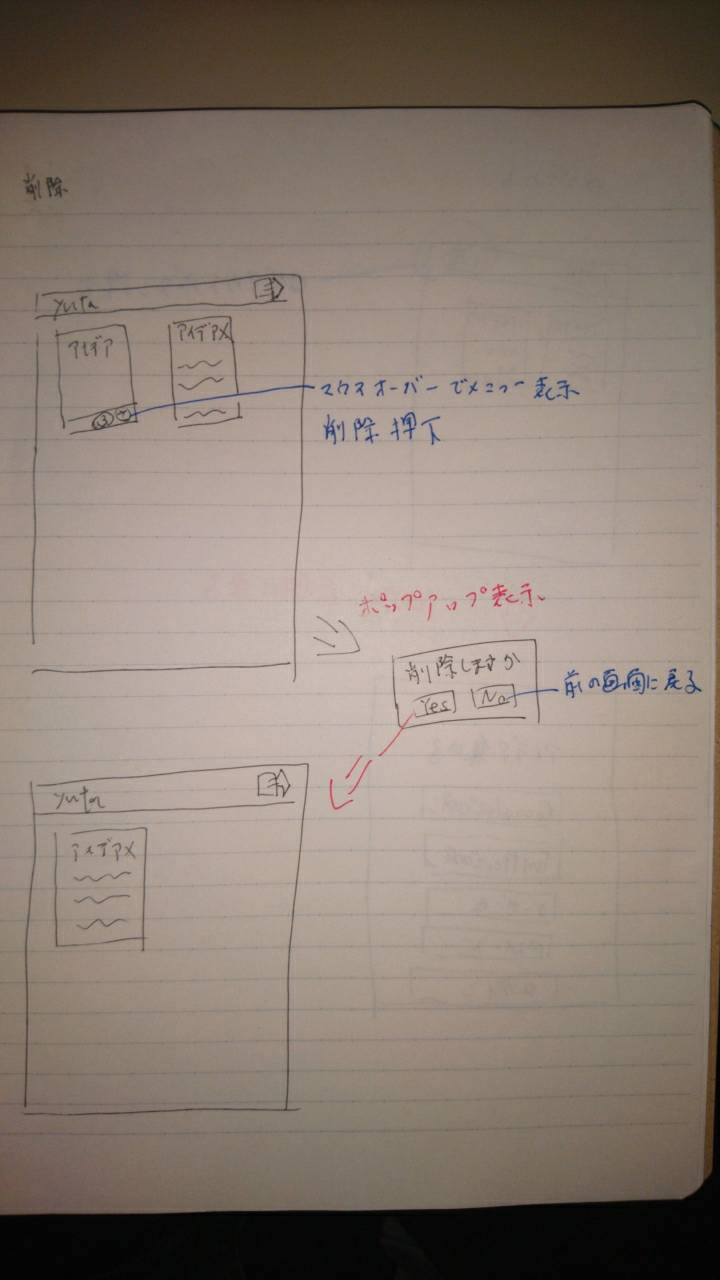 削除
yuta
アイデア
アイデアメ
マウスオーバーでメニュー表示
削除押下
ポップアップ表示
削除しますか
Yes No
前の画面に戻る
yuta
アイデアメ